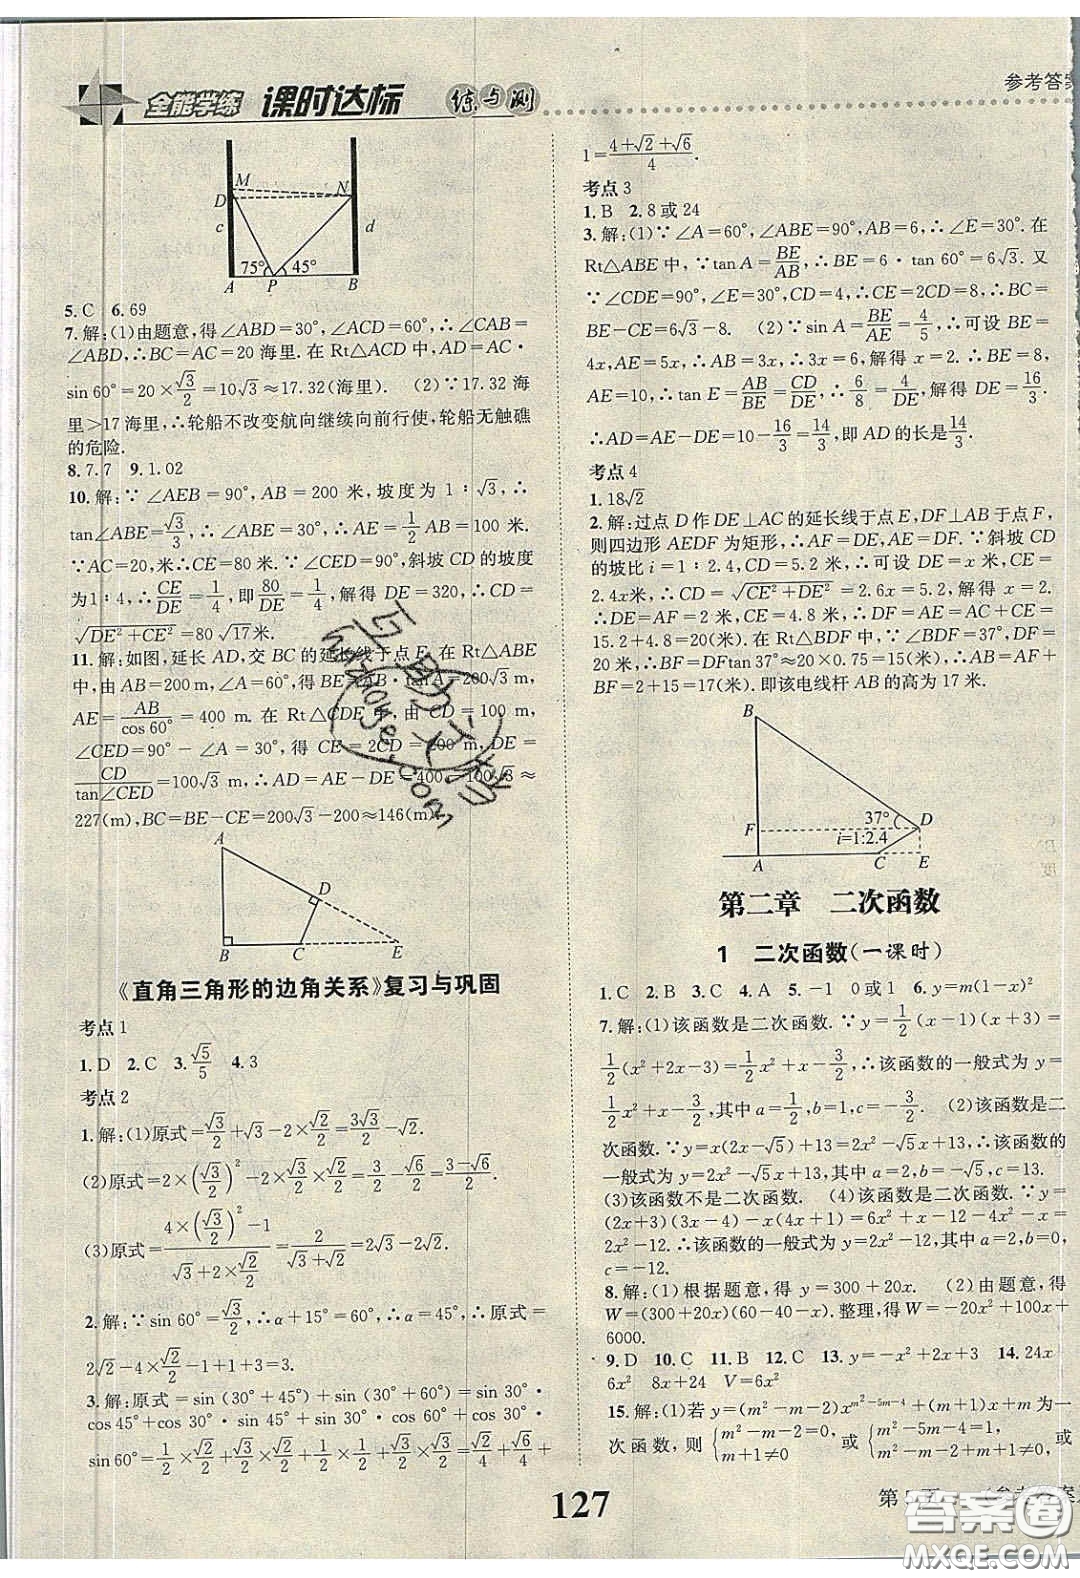 全能学练 课时达标 练与测
参考答案
M
N
D
c
d
75°
45°
A
P
B
5.C 6.69
7.解:(1)由题意,得∠ABD=30°,∠ACD=60°,∴∠CAB=
∠ABD,∴BC=AC=20海里.在Rt△ACD中,AD=AC·
sin 60°=20×√3/2=10√3≈17.32(海里). (2)∵17.32海
里>17海里,∴轮船不改变航向继续向前行使,轮船无触礁
的危险.
8.7.7 9.1.02
10.解:∵∠AEB=90°,AB=200米,坡度为1∶√3,∴
tan∠ABE=√3/3,∴∠ABE=30°,∴AE=1/2AB=100米.
∵AC=20,米∴CE=80米.∵∠CED=90°,斜坡CD的坡度
为1∶4,∴CE/DE=1/4,即80/DE=1/4,解得DE=320,∴CD=
√(DE²+CE²)=80√17米.
11.解:如图,延长AD,交BC的延长线于点E,在Rt△ABE
中,由AB=200 m,∠A=60°,得BE=AB·tanA=200√3 m,
AE=AB/cos60°=400 m.在Rt△CDE中,由CD=100 m,
∠CED=90°-∠A=30°,得CE=2CD=200 m,DE=
CD/tan∠CED=100√3 m,∴AD=AE-DE=400-100√3≈
227(m),BC=BE-CE=200√3-200≈146(m).
A
D
B
C
E
《直角三角形的边角关系》复习与巩固
考点1
1.D 2.C 3.√5/5 4.3
考点2
1.解:(1)原式=√3/2+√3-2×√2/2=3√3/2-√2.
(2)原式=2×(√3/2)²-2×√3/2×√2/2=3/2-√6/2=(3-√6)/2.
(3)原式=(4×(√3/2)²-1)/(√3+2×√2/2)=2/(√3+√2)=2√3-2√2.
2.解:∵sin 60°=√3/2,∴α+15°=60°,∴α=45°,∴原式=
2√2-4×√2/2-1+1+3=3.
3.解:原式=sin(30°+45°)+sin(30°+60°)=sin 30°·
cos 45°+cos 30°·sin 45°+sin 30°·cos 60°+cos 30°·
sin 60°=1/2×√2/2+√3/2×√2/2+1/2×1/2+√3/2×√3/2=√2/4+√6/4+
1=(4+√2+√6)/4.
考点3
1.B 2.8或24
3.解:(1)∵∠A=60°,∠ABE=90°,AB=6,∴∠E=30°.在
Rt△ABE中,∵tanA=BE/AB,∴BE=6·tan 60°=6√3.又
∵∠CDE=90°,∠E=30°,CD=4,∴CE=8,∴BC=
BE-CE=6√3-8. (2)∵sinA=BE/AE=4/5,∴可设BE=
4x,AE=5x,∴AB=3x,∴3x=6,解得x=2.∴BE=8,
AE=10,∴tan E=AB/BE=CD/DE,∴6/8=4/DE,解得DE=16/3.
∴AD=AE-DE=10-16/3=14/3,即AD的长是14/3.
考点4
1.18√2
2.解:过点D作DE⊥AC的延长线于点E,DF⊥AB于点F,
则四边形AEDF为矩形,∴AF=DE,AE=DF.∵斜坡CD
的坡比i=1∶2.4,CD=5.2米,∴可设DE=x米,CE=
2.4x米,∴CD=√(CE²+DE²)=2.6x=5.2,解得x=2.
∴DE=AF=2米,CE=4.8米,∴DF=AE=AC+CE=
15.2+4.8=20(米).在Rt△BDF中,∵∠BDF=37°,DF=
20米,∴BF=DFtan37°≈20×0.75=15(米),∴AB=AF+
BF=2+15=17(米).即该电线杆AB的高为17米.
B
37°
D
F
i=1:2.4
A
C
E
第二章 二次函数
1 二次函数(一课时)
1.C 2.B 3.C 4.A 5.-1 0或1 6.y=m(1-x)²
7.解:(1)该函数是二次函数.∵y=1/2(x-1)(x+3)=
1/2(x²+2x-3)=1/2x²+x-3/2,∴该函数的一般式为y=
1/2x²+x-3/2,其中a=1/2,b=1,c=-3/2. (2)该函数是二
次函数.∵y=x(2x-√5)+13=2x²-√5x+13,∴该函数的
一般式为y=2x²-√5x+13,其中a=2,b=-√5,c=13.
(3)该函数不是二次函数. (4)该函数是二次函数.∵y=
(2x+3)(3x-4)-(4x+1)=6x²+x-12-4x²-x=
2x²-12.∴该函数的一般式为y=2x²-12,其中a=2,b=0,
c=-12.
8.解:(1)根据题意,得y=300+20x. (2)由题意,得
W=(300+20x)(60-40-x).整理,得W=-20x²+100x+
6000.
9.D 10.C 11.B 12.C 13.y=-x²+2x+3 14.24x
6x² 8x+24 V=6x²
15.解:(1)若y=(m²-m-2)x^(m²-5m-4)+(m+1)x+m为一
次函数,则{m²-m-2=0, m+1≠0 或{m²-5m-4=1, m²-m-2+m+1≠0,或
127
答案圈
MXQE.COM